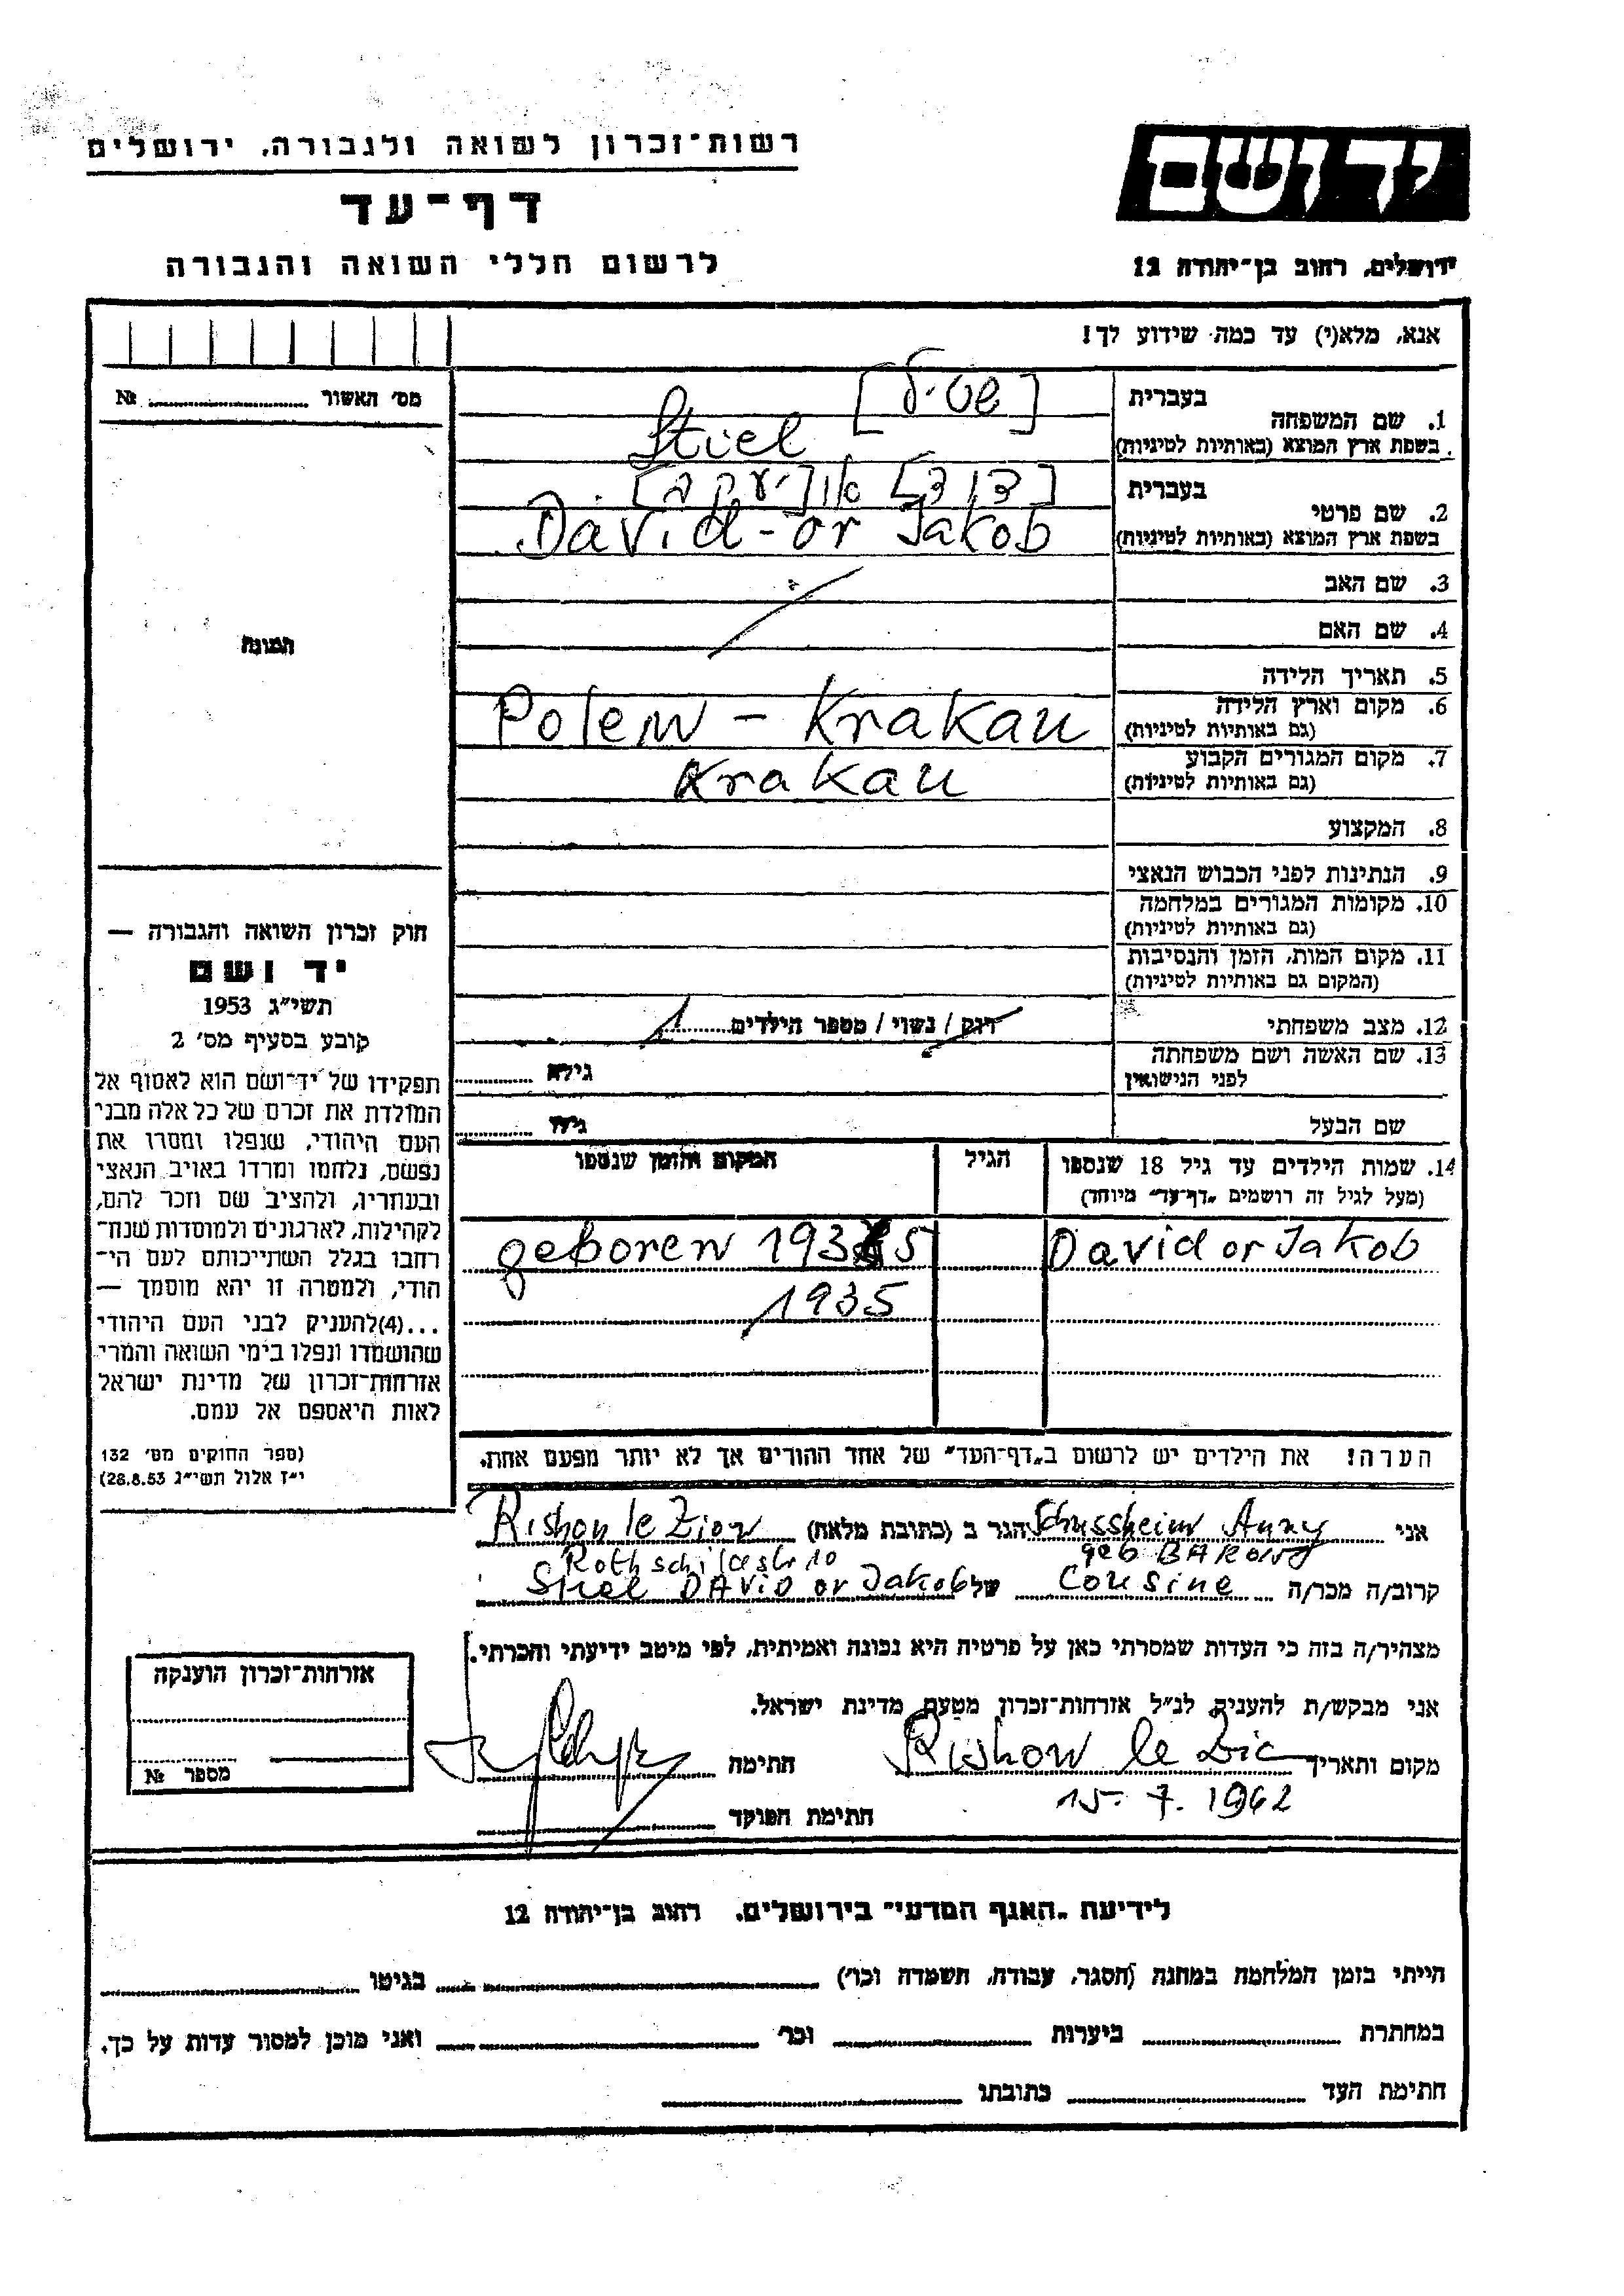 רשות־זכרון לשואה ולגבורה, ירושלים
דף־עד
לרשום חללי השואה והגבורה
ידושם
ירושלים, רחוב בן־יהודה 12
אנא, מלא(י) עד כמה שידוע לך!
מס׳ האשור № ..........
בעברית [שטיל]
1. שם המשפחה
בשפת ארץ המוצא (באותיות לטיניות) Stiel
בעברית [דוד] או [יעקב]
2. שם פרטי
בשפת ארץ המוצא (באותיות לטיניות) David - or Jakob
3. שם האב
4. שם האם
5. תאריך הלידה
6. מקום וארץ הלידה
(גם באותיות לטיניות) Polen - Krakau
7. מקום המגורים הקבוע
(גם באותיות לטיניות) Krakau
8. המקצוע
9. הנתינות לפני הכבוש הנאצי
10. מקומות המגורים במלחמה
(גם באותיות לטיניות)
11. מקום המות, הזמן והנסיבות
(המקום גם באותיות לטיניות)
12. מצב משפחתי רוק / נשוי / מספר הילדים
13. שם האשה ושם משפחתה
לפני הנישואין גילה
שם הבעל גילו
14. שמות הילדים עד גיל 18 שנספו
(מעל לגיל זה רושמים „דף־עד״ מיוחד)
הגיל
המקום והזמן שנספו
David or Jakob geboren 193 5
1935
הערה! את הילדים יש לרשום ב„דף־העד״ של אחד ההורים אך לא יותר מפעם אחת.
התמונה
חוק זכרון השואה והגבורה —
יד ושם
תשי״ג 1953
קובע בסעיף מס׳ 2
תפקידו של יד־ושם הוא לאסוף אל
המולדת את זכרם של כל אלה מבני
העם היהודי, שנפלו ומסרו את
נפשם, נלחמו ומרדו באויב הנאצי
ובעוזריו, ולהציב שם וזכר להם,
לקהילות, לארגונים ולמוסדות שנח־
רחבו בגלל השתייכותם לעם הי־
הודי, ולמטרה זו יהא מוסמך —
...(4)להעניק לבני העם היהודי
שהושמדו ונפלו בימי השואה והמרי
אזרחות־זכרון של מדינת ישראל
לאות היאספם אל עמם.
(ספר החוקים מס׳ 132
י״ז אלול תשי״ג 28.8.53)
אני Schussheim Anny הגר ב (כתובת מלאה) Rishon le Zion
geb Rothschildstr 10
קרוב/ה מכר/ה Cousine של Stiel DAVID or Jakob
מצהיר/ה בזה כי העדות שמסרתי כאן על פרטיה היא נכונה ואמיתית, לפי מיטב ידיעתי והכרתי.
אני מבקש/ת להעניק לנ״ל אזרחות־זכרון מטעם מדינת ישראל.
מקום ותאריך Rishon le Zion חתימה
15. 7. 1962
חתימת הפוקד
אזרחות־זכרון הוענקה
מספר №
לידיעת „האגף המדעי״ בירושלים, רחוב בן־יהודה 12
הייתי בזמן המלחמה במחנה (הסגר, עבודה, השמדה וכו׳) .......... בגיטו ..........
במחתרת .......... ביערות .......... וכו׳ .......... ואני מוכן למסור עדות על כך.
חתימת העד .......... כתובתו ..........